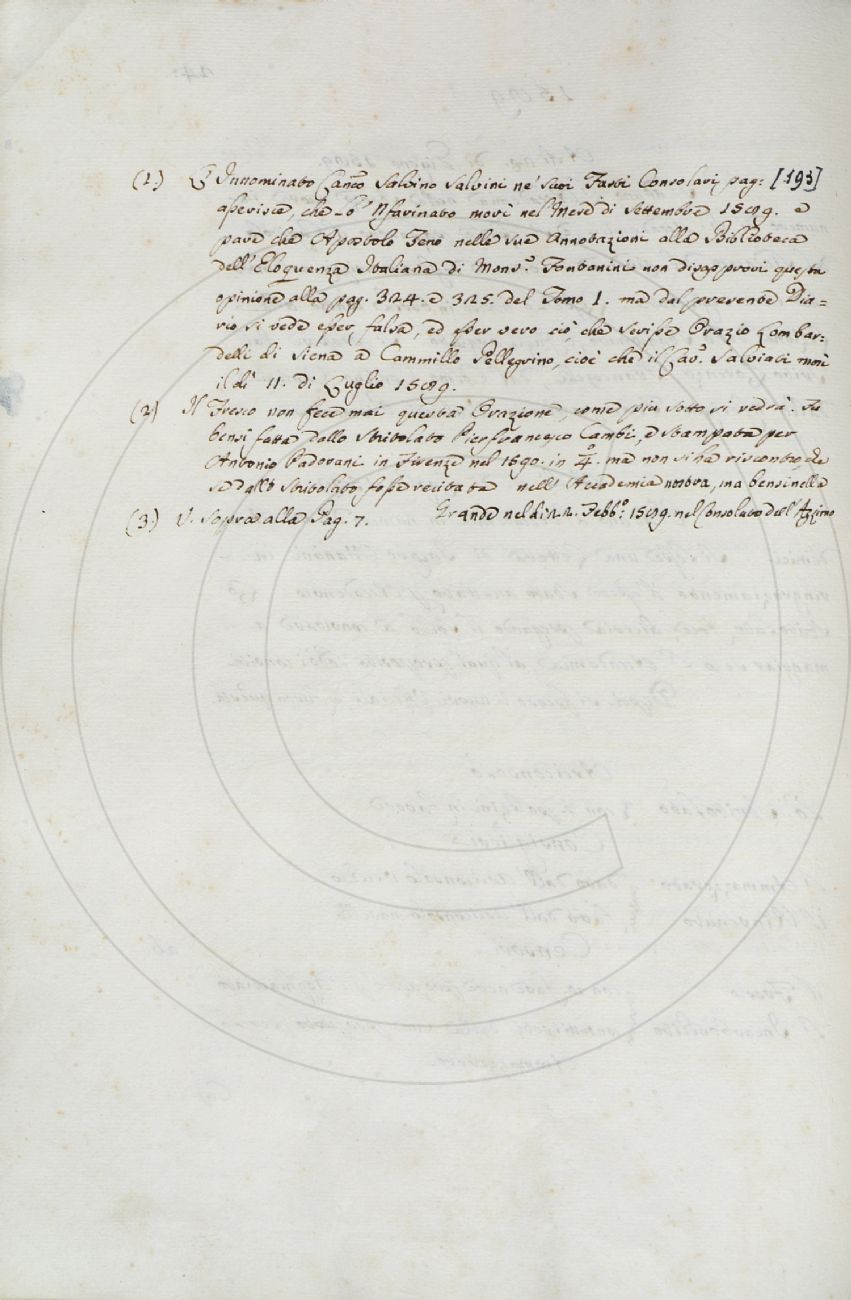 (1.) L'Innominato Can.co Salvino Salvini ne' suoi Fasti Consolari, pag: [193]
asserisce, che lo 'Nfarinato morì nel Mese di Settembre 1589. e
pare che Apostolo Zeno nelle sue Annotazioni alla Biblioteca
dell'Eloquenza Italiana di Mons.r Fontanini non disapprovi questa
opinione alla pag. 324. e 325. del Tomo 1. ma dal presente Dia=
rio si vede esser falsa, ed esser vero ciò, che scrisse Orazio Lombar:
delli di Siena a Cammillo Pellegrino, cioè che il Cav.r Salviati morì
il dì 11. di Luglio 1589.
(2) Il Fresco non fece mai questa Orazione, come più sotto si vedrà. Fu
bensì fatta dallo Stritolato Pierfrancesco Cambi, e stampata per
Antonio Padovani in Firenze nel 1590. in 4.o ma non si ha riscontro, che
se dallo Stritolato fosse recitata nell'Accademia nostra, ma bensì nella
Grande nel dì 22. Febb.o 1589. nel Consolato dell'Azzimo
(3) V. sopra alla Pag. 7.